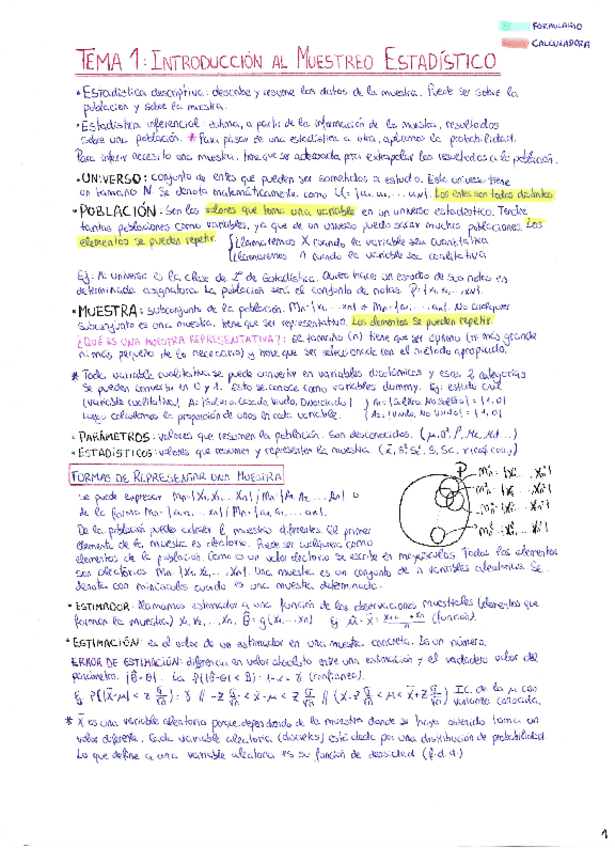 FORMULARIO
CALCULADORA
TEMA 1: INTRODUCCIÓN AL MUESTREO ESTADÍSTICO
• Estadística descriptiva: describe y resume los datos de la muestra. Puede ser sobre la
población y sobre la muestra.
• Estadística inferencial: estima, a partir de la información de la muestra, resultados
sobre una población. * Para pasar de una estadística a otra, aplicamos la probabilidad.
Para inferir necesito una muestra, tiene que ser adecuada para extrapolar los resultados a la población.
• UNIVERSO: conjunto de entes que pueden ser sometidos a estudio. Este universo tiene
un tamaño N. Se denota matemáticamente como Los entes son todos distintos.
• POBLACIÓN: Son los valores que toma una variable en un universo estadístico. Tendré
tantas poblaciones como variables, ya que de un universo puedo sacar muchas poblaciones. Los
elementos se pueden repetir. { Llamaremos X cuando la variable sea cuantitativa
{ Llamaremos A cuando la variable sea cualitativa
Ej: Mi universo es la clase de 2º de Estadística. Quiero hacer un estudio de sus notas en
determinada asignatura. La población será el conjunto de notas.
• MUESTRA: subconjunto de la población. No cualquier
subconjunto es una muestra, tiene que ser representativo. Los elementos se pueden repetir.
¿QUÉ ES UNA MUESTRA REPRESENTATIVA?: El tamaño (n) tiene que ser óptimo (ni más grande
ni más pequeño de lo necesario) y tiene que ser seleccionada con el método apropiado.
* Toda variable cualitativa se puede convertir en variables dicotómicas y esas 2 categorías
se pueden convertir en 0 y 1. Esto se conoce como variables dummy. Ej: estado civil
(variable cualitativa) A: {Soltero, Casado, Viudo, Divorciado}
Luego calculamos la proporción de unos en cada variable.
• PARÁMETROS: valores que resumen la población. Son desconocidos.
• ESTADÍSTICOS: valores que resumen y representan la muestra.
FORMAS DE REPRESENTAR UNA MUESTRA
Se puede expresar
de la forma
De la población puedes extraer muestras diferentes. El primer
elemento de la muestra es aleatorio. Puede ser cualquiera como
elementos de la población. Como es un valor aleatorio se escribe en mayúsculas. Todos los elementos
son aleatorios. Una muestra es un conjunto de n variables aleatorias. Se
denota con minúsculas cuando es una muestra determinada.
• ESTIMADOR: llamamos estimador a una función de las observaciones muestrales (elementos que
forman la muestra) (función).
• ESTIMACIÓN: es el valor de un estimador en una muestra concreta. Es un número.
ERROR DE ESTIMACIÓN: diferencia en valor absoluto entre una estimación y el verdadero valor del
parámetro. (confianza).
I.C. de la μ con
varianza conocida.
* X̄ es una variable aleatoria porque dependiendo de la muestra donde se haya obtenido toma un
valor diferente. Cada variable aleatoria (discretas) está dada por una distribución de probabilidad.
Lo que define a una variable aleatoria es su función de densidad (f.d.d.)
1